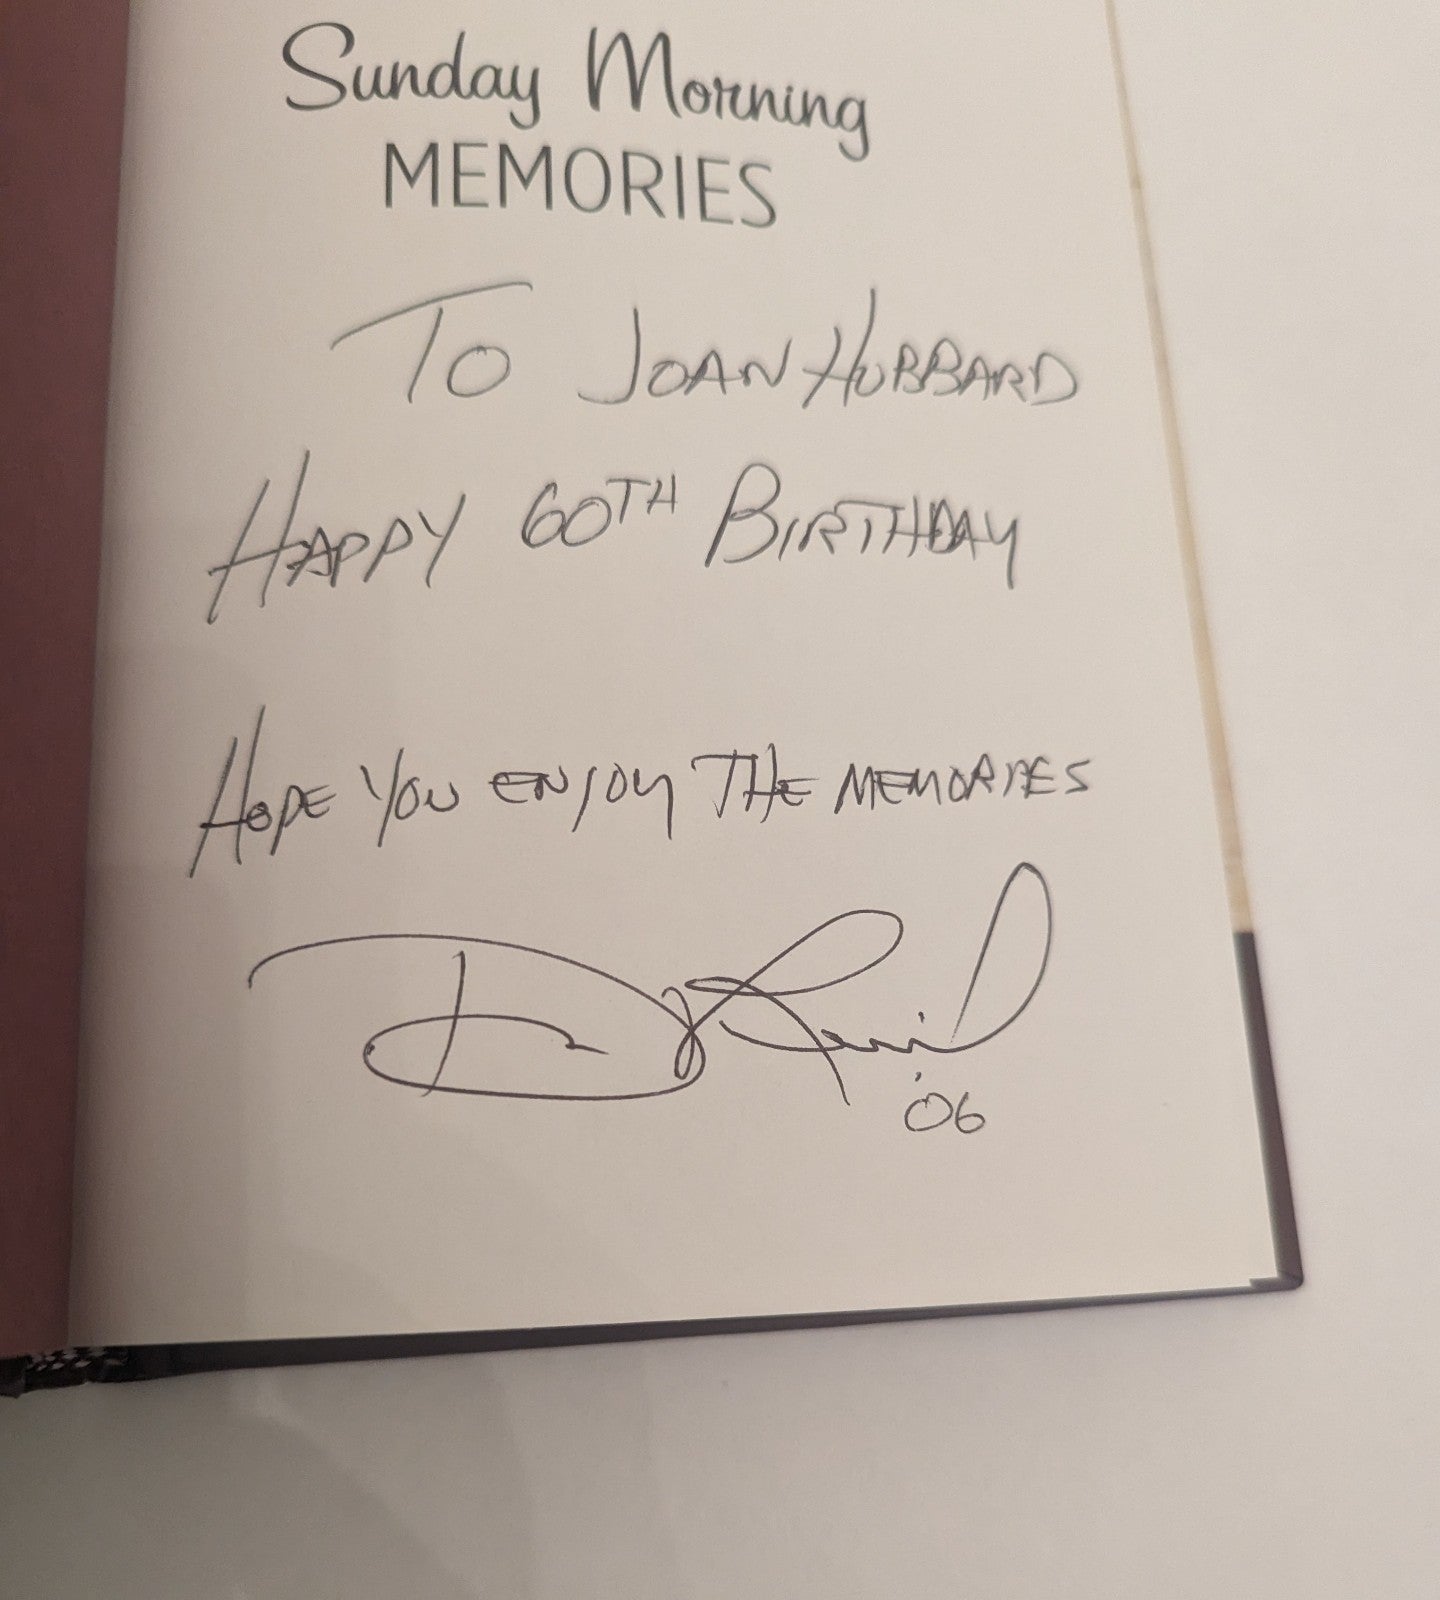 Sunday Morning
MEMORIES
TO JOAN HUBBARD
HAPPY 60TH BIRTHDAY
HOPE YOU ENJOY THE MEMORIES
'06